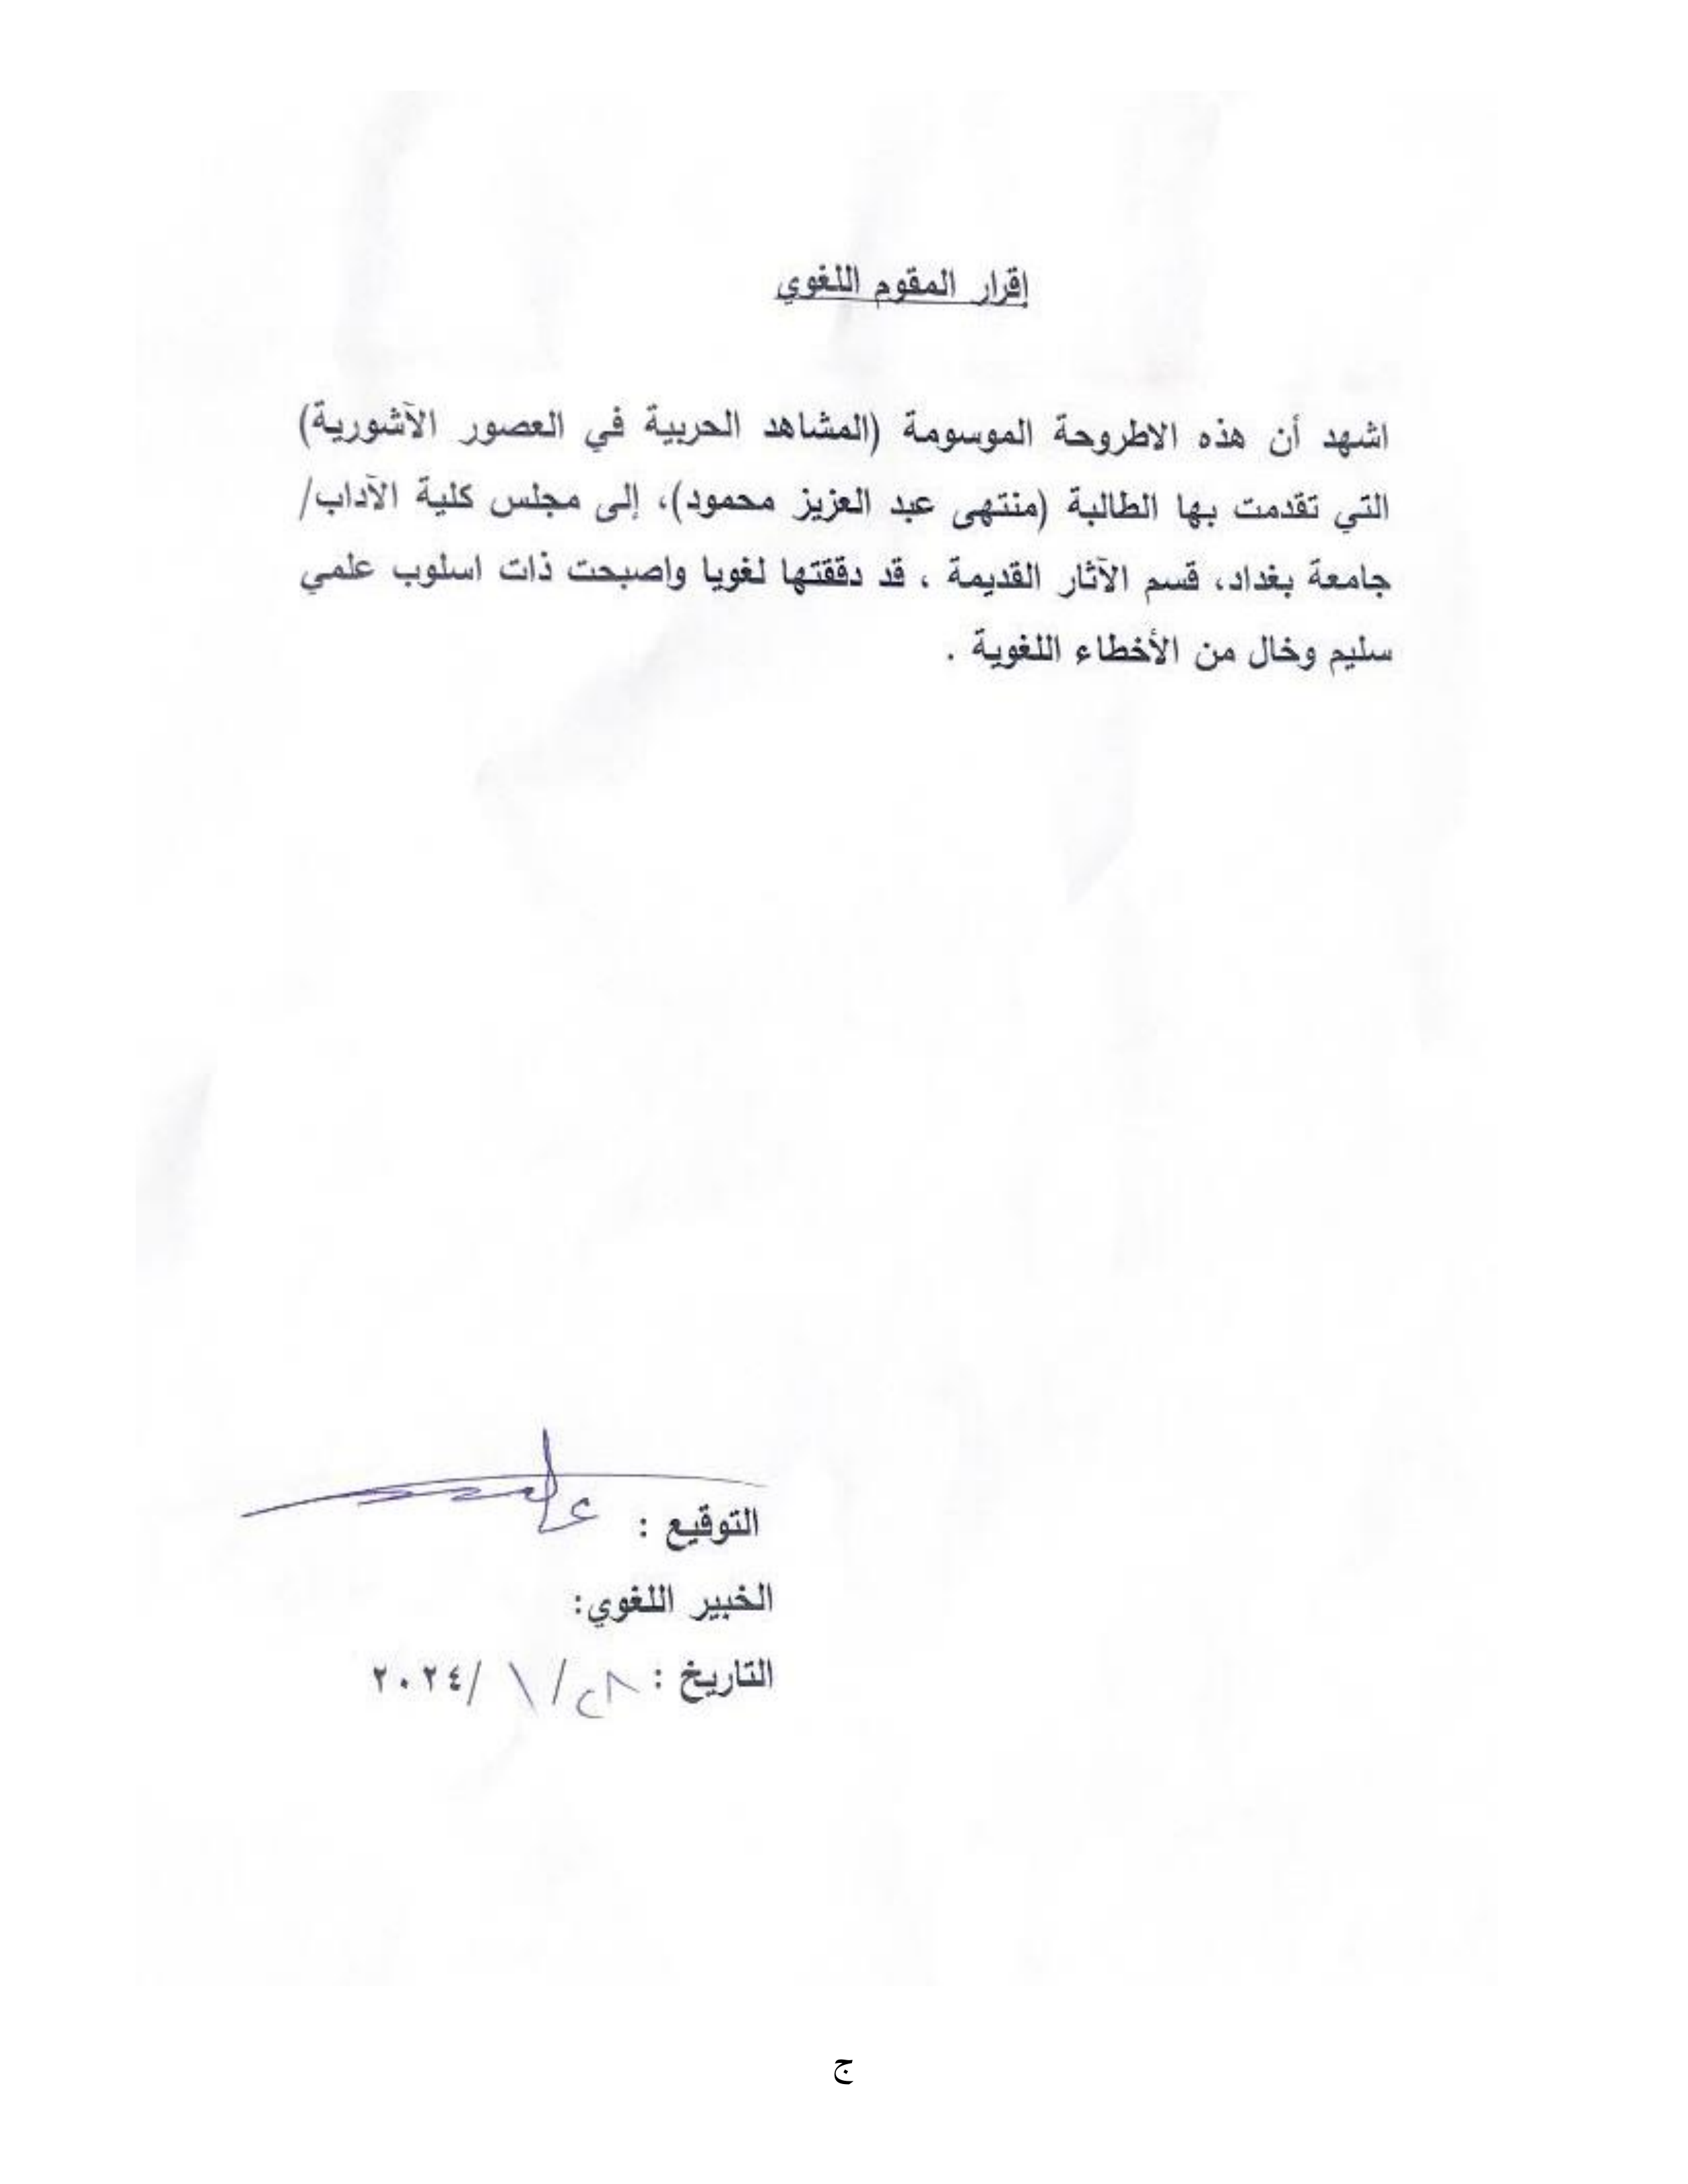 إقرار المقوم اللغوي
اشهد أن هذه الاطروحة الموسومة (المشاهد الحربية في العصور الآشورية)
التي تقدمت بها الطالبة (منتهى عبد العزيز محمود)، إلى مجلس كلية الآداب/
جامعة بغداد، قسم الآثار القديمة ، قد دققتها لغويا واصبحت ذات اسلوب علمي
سليم وخال من الأخطاء اللغوية .
التوقيع :
الخبير اللغوي:
التاريخ : ٢٨/ ١ /٢٠٢٤
ج